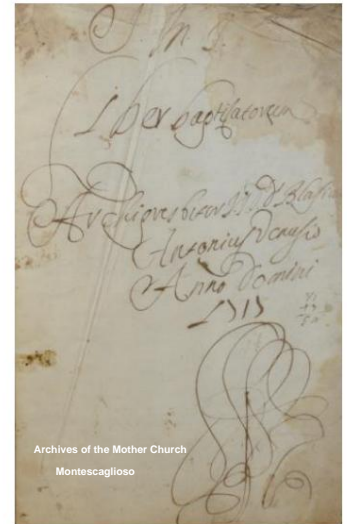 Liber baptisatorum
Archipresbiter
Antonius Venusio
Anno Domini
1717
Archives of the Mother Church
Montescaglioso